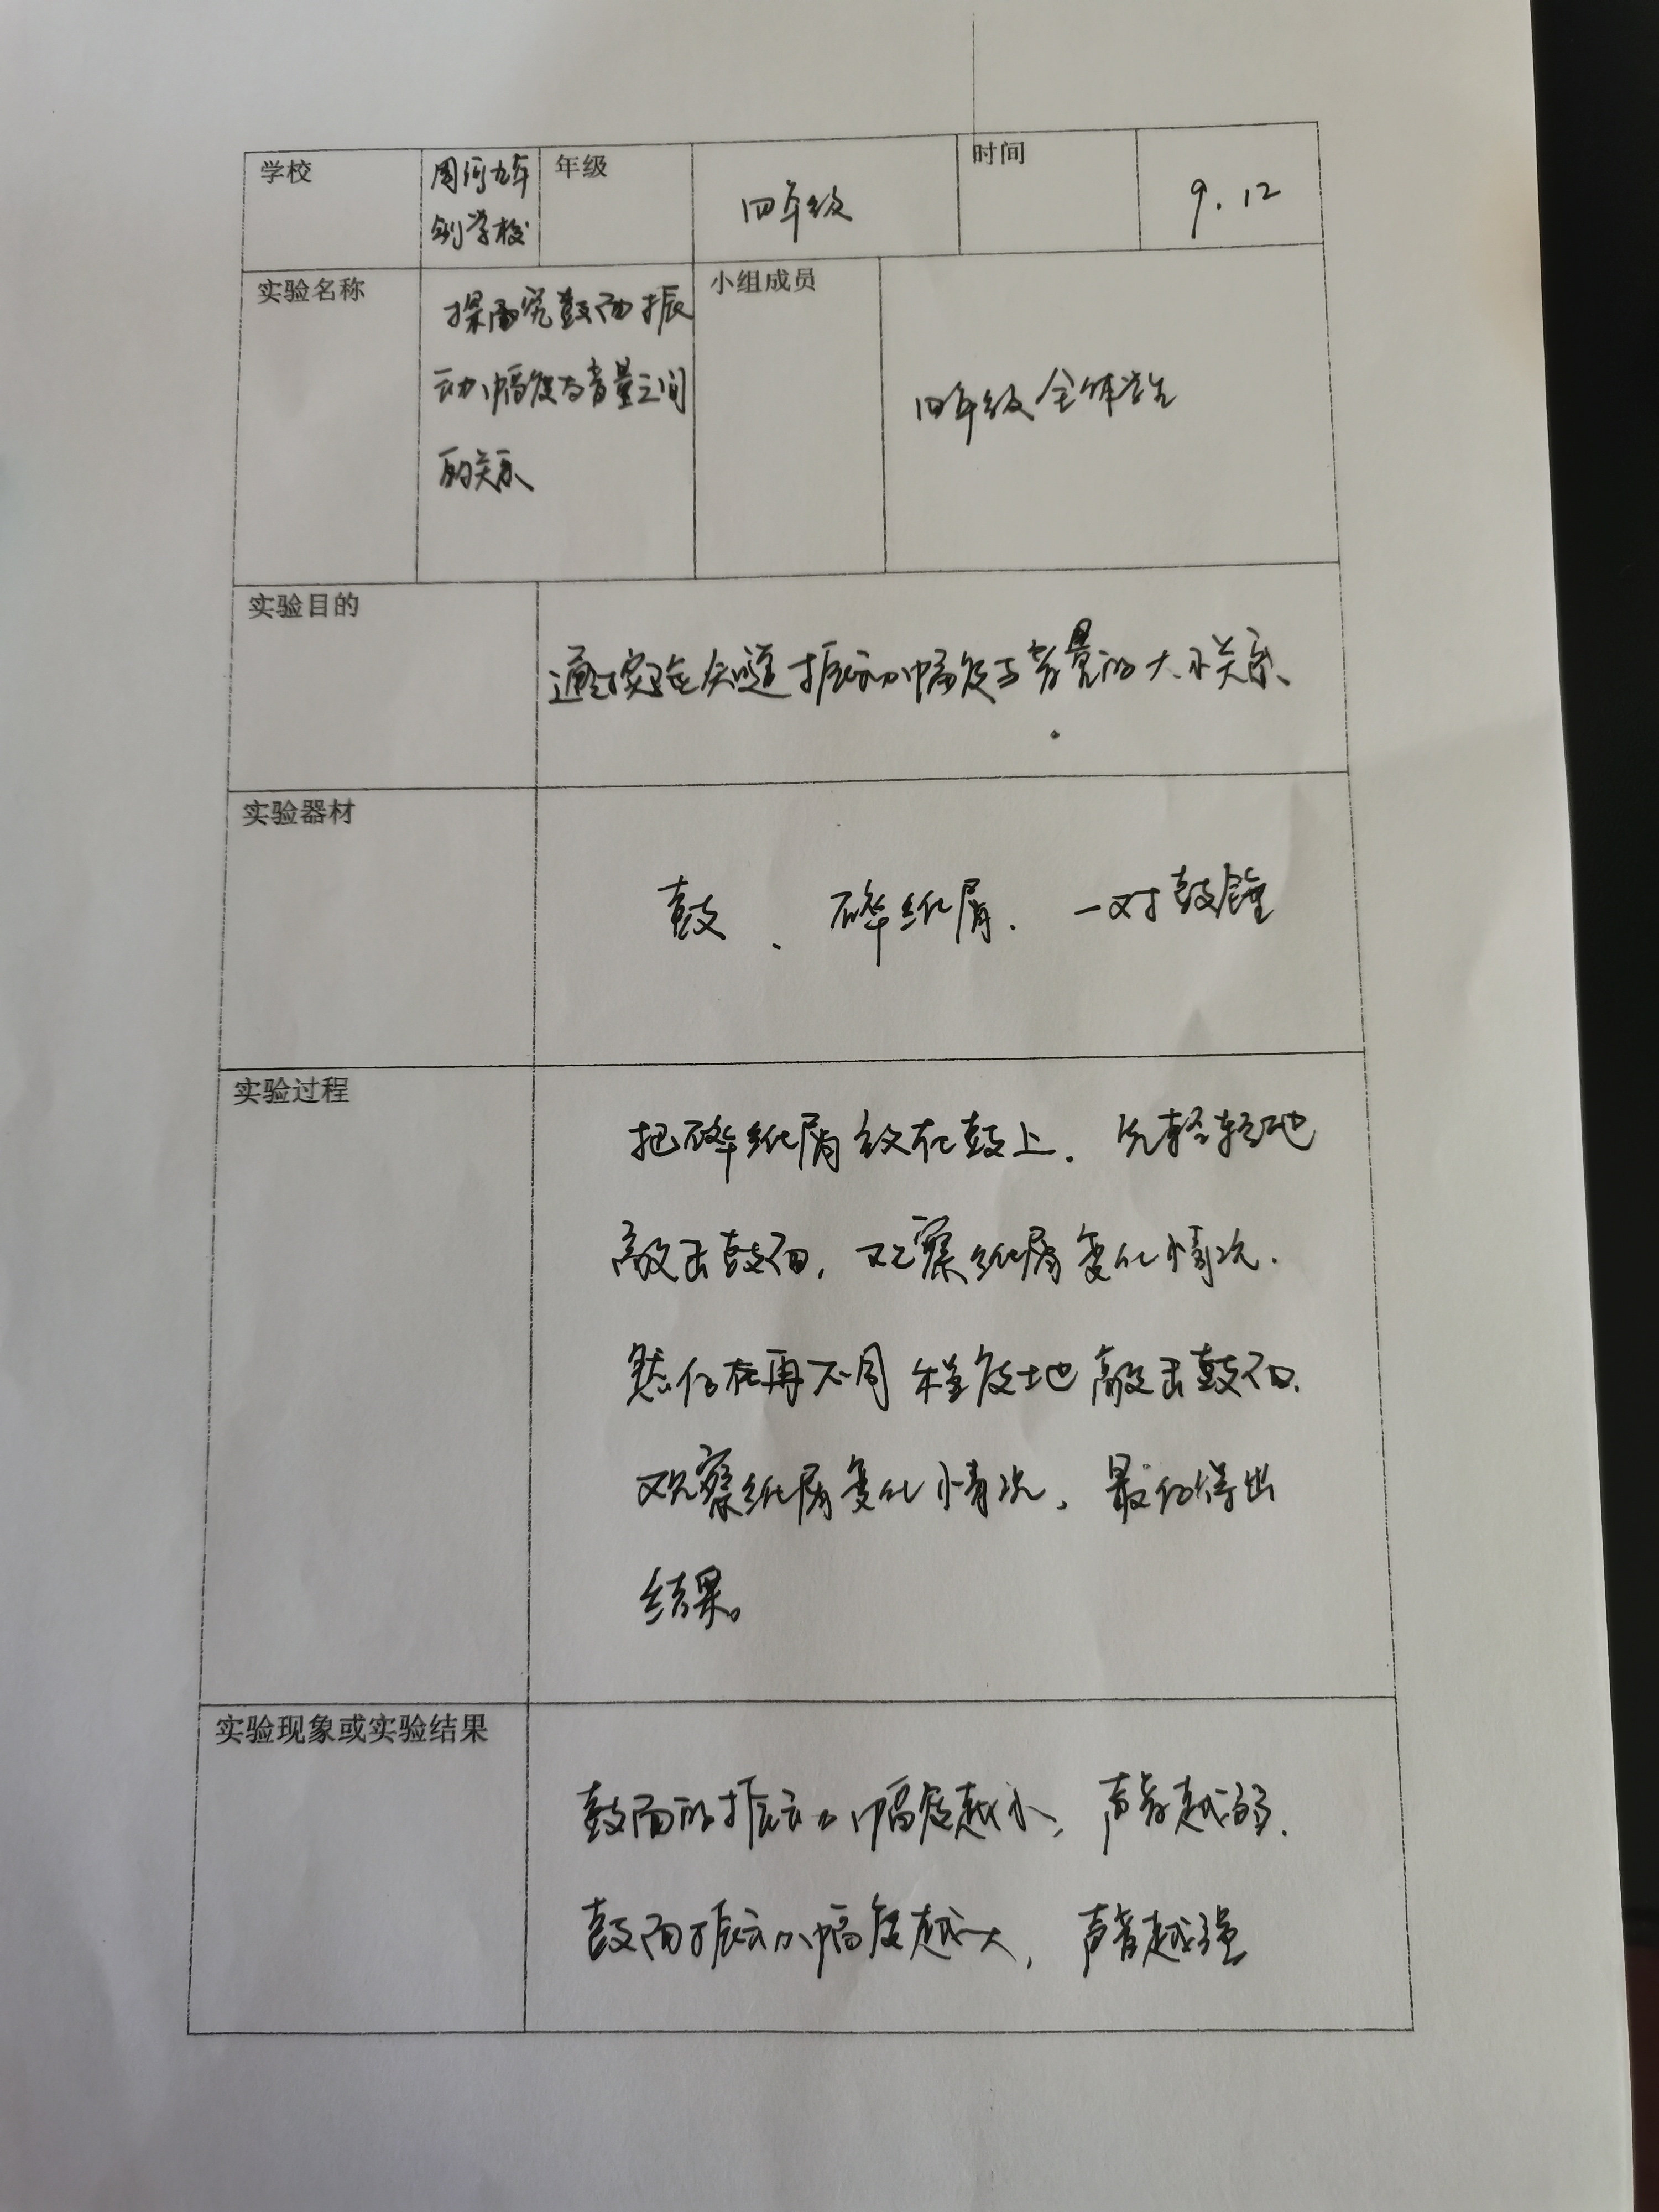 学校 周河九年 年级 四年级 时间 9.12
制学校
实验名称 探究鼓面振 小组成员 四年级全体学生
动幅度与音量之间
的关系
实验目的 通过实验知道振动幅度与音量的大小关系
实验器材 鼓、碎纸屑、一对鼓锤
实验过程 把碎纸屑放在鼓上.先轻轻地
敲击鼓面,观察纸屑变化情况.
然后在再不同程度地敲击鼓面.
观察纸屑变化情况,最后得出
结果。
实验现象或实验结果 鼓面的振动幅度越小,声音越弱.
鼓面振动幅度越大,声音越强